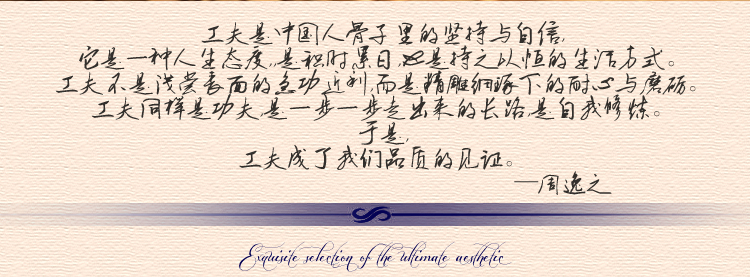 工夫是中国人骨子里的坚持与自信,
它是一种人生态度,是积时累日,也是持之以恒的生活方式。
工夫不是浅尝表面的急功近利,而是精雕细琢下的耐心与磨砺。
工夫同样是功夫,是一步一步走出来的长路,是自我修炼。
于是,
工夫成了我们品质的见证。
—周逸之
Exquisite selection of the ultimate aesthetic